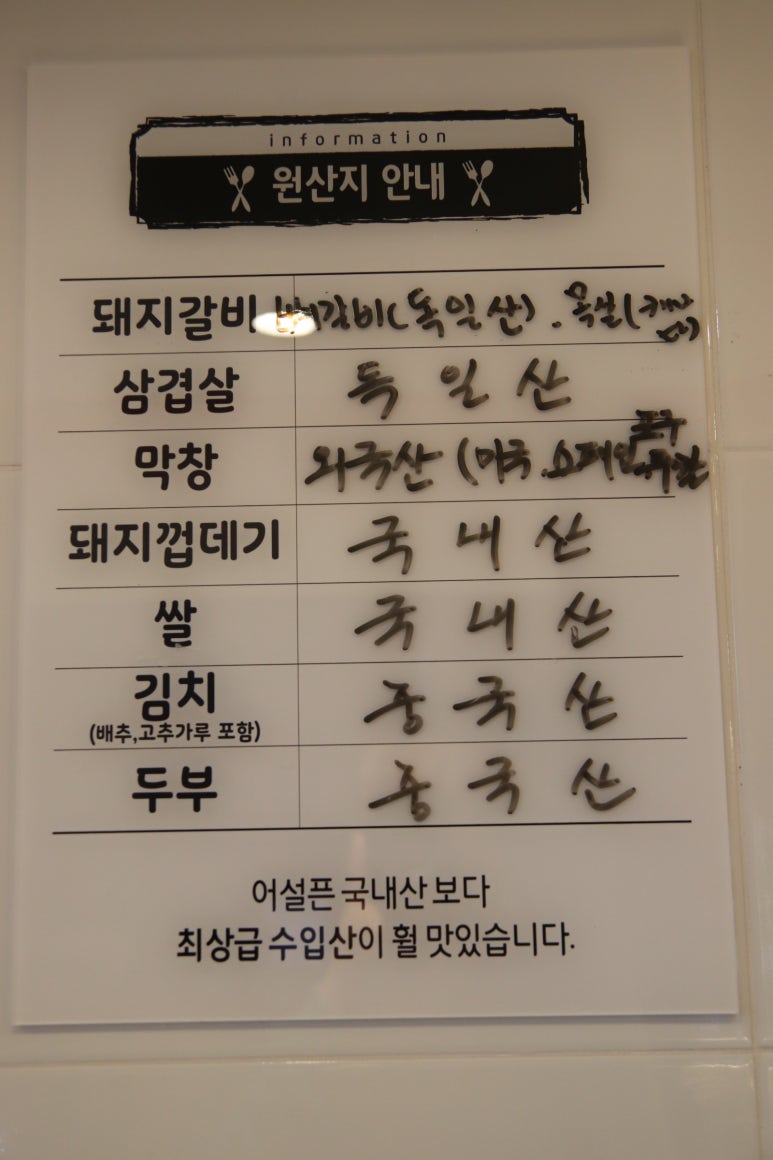 information
원산지 안내
돼지갈비 갈비(독일산). 목살(캐나다)
삼겹살 독일산
막창 외국산 (미국.
돼지껍데기 국내산
쌀 국내산
김치 중국산
(배추,고추가루 포함)
두부 중국산
어설픈 국내산 보다
최상급 수입산이 훨 맛있습니다.